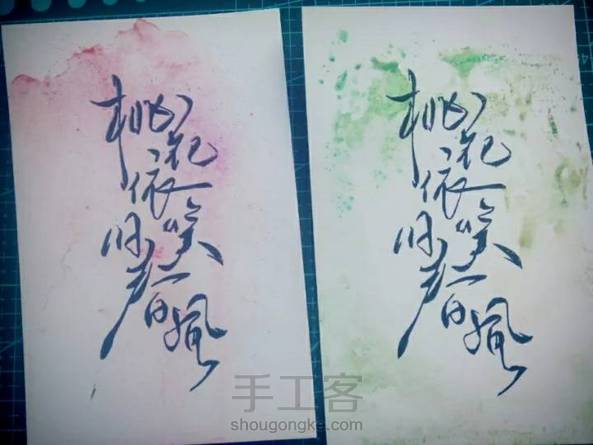 桃花依旧笑春風
桃花依旧笑春風
手工客
shougongke.com